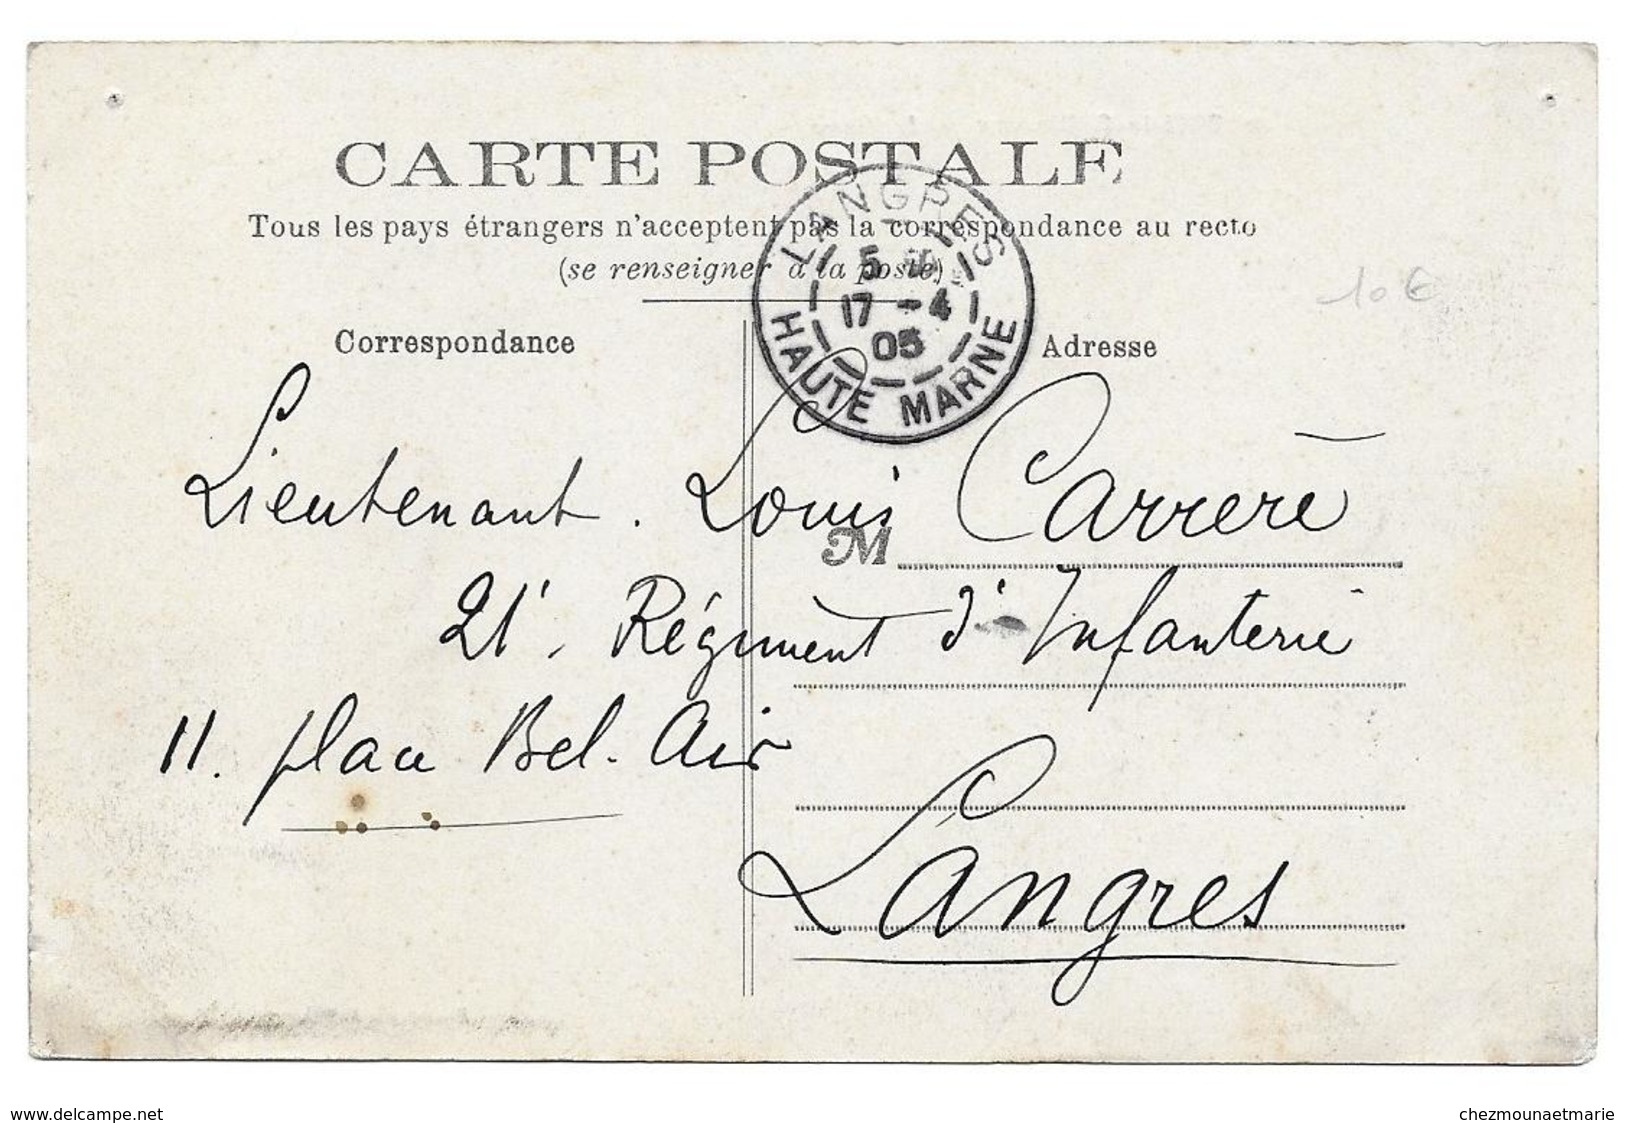 CARTE POSTALE
Tous les pays étrangers n'acceptent pas la correspondance au recto
(se renseigner à la poste)
LANGRES
5
17 - 4
05
HAUTE MARNE
10 €
Correspondance
Adresse
Lieutenant. Louis Carrère
M
21e. Régiment d'Infanterie
11. place Bel-Air
Langres
www.delcampe.net
chezmounaetmarie